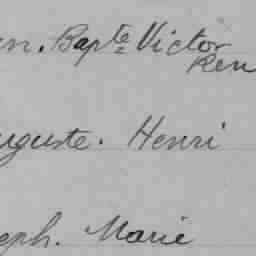 en. Bapte Victor
Ren
uguste. Henri
eph. Marie